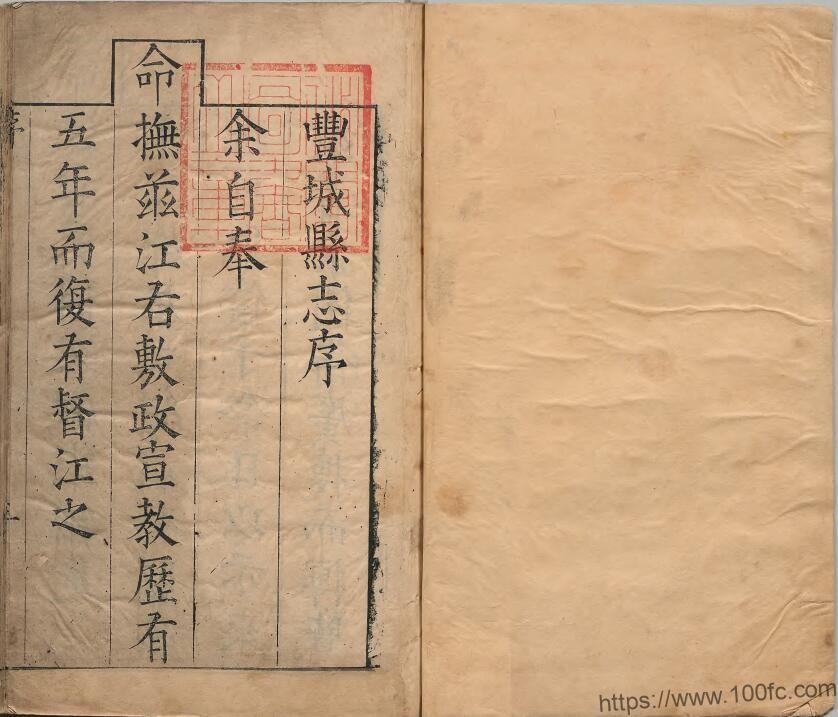 豐城縣志序
余自奉
命撫茲江右敷政宣教歷有
五年而復有督江之
https://www.100fc.com